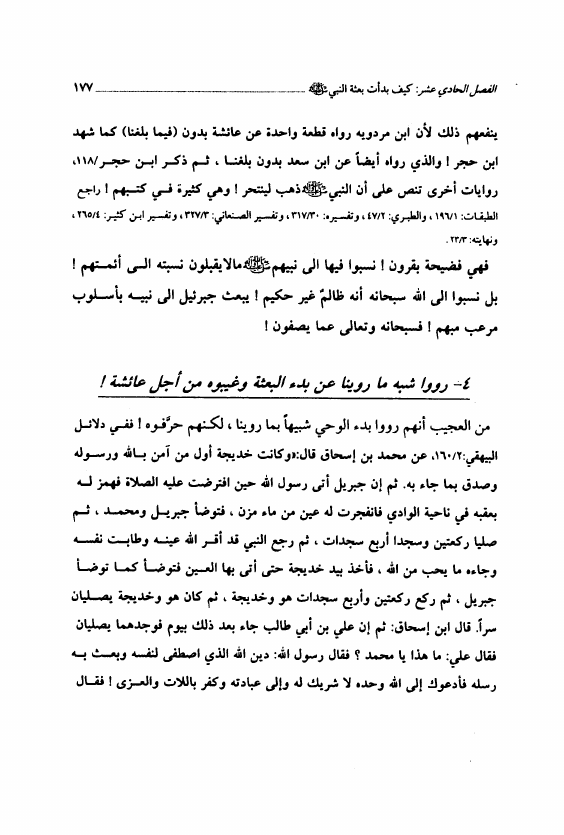 الفصل الحادي عشر: كيف بدأت بعثة النبي ﷺ ١٧٧
ينفعهم ذلك لأن ابن مردويه رواه قطعة واحدة عن عائشة بدون (فيما بلغنا) كما شهد
ابن حجر ! والذي رواه أيضاً عن ابن سعد بدون بلغنـا ، ثـم ذكـر ابـن حجـر/١١٨،
روايات أخرى تنص على أن النبي ﷺ ذهب لينتحر ! وهي كثيرة فـي كتـبهم ! راجع
الطبقات: ١٩٦/١ ، والطبري: ٤٧/٢ ، وتفسيره: ٣١٧/٣٠ ، وتفسير الصنعاني: ٣٢٧/٣ ، وتفسير ابن كثير: ٢٦٥/٤ ،
ونهايته: ٢٣/٣ .
فهي فضيحة بقرون ! نسبوا فيها الى نبيهم ﷺ مالايقبلون نسبته الـى أئمـتهم !
بل نسبوا الى الله سبحانه أنه ظالمٌ غير حكيم ! يبعث جبرئيل الى نبيـه بأسـلوب
مرعب مبهم ! فسبحانه وتعالى عما يصفون !
٤- رووا شبه ما روينا عن بدء البعثة وغيبوه من أجل عائشة !
من العجيب أنهم رووا بدء الوحي شبيهاً بما روينا ، لكـنهم حرَّفـوه ! ففـي دلائـل
البيهقي:١٦٠/٢، عن محمد بن إسحاق قال:«وكانت خديجة أول من آمن بـالله ورسـوله
وصدق بما جاء به. ثم إن جبريل أتى رسول الله حين افترضت عليه الصلاة فهمز لـه
بعقبه في ناحية الوادي فانفجرت له عين من ماء مزن ، فتوضأ جبريـل ومحمـد ، ثـم
صليا ركعتين وسجدا أربع سجدات ، ثم رجع النبي قد أقـر الله عينـه وطابـت نفسـه
وجاءه ما يحب من الله ، فأخذ بيد خديجة حتى أتى بها العـين فتوضـأ كمـا توضـأ
جبريل ، ثم ركع ركعتين وأربع سجدات هو وخديجة ، ثم كان هو وخديجة يصـليان
سراً. قال ابن إسحاق: ثم إن علي بن أبي طالب جاء بعد ذلك بيوم فوجدهما يصليان
فقال علي: ما هذا يا محمد ؟ فقال رسول الله: دين الله الذي اصطفى لنفسه وبعـث بـه
رسله فأدعوك إلى الله وحده لا شريك له وإلى عبادته وكفر باللات والعـزى ! فقـال